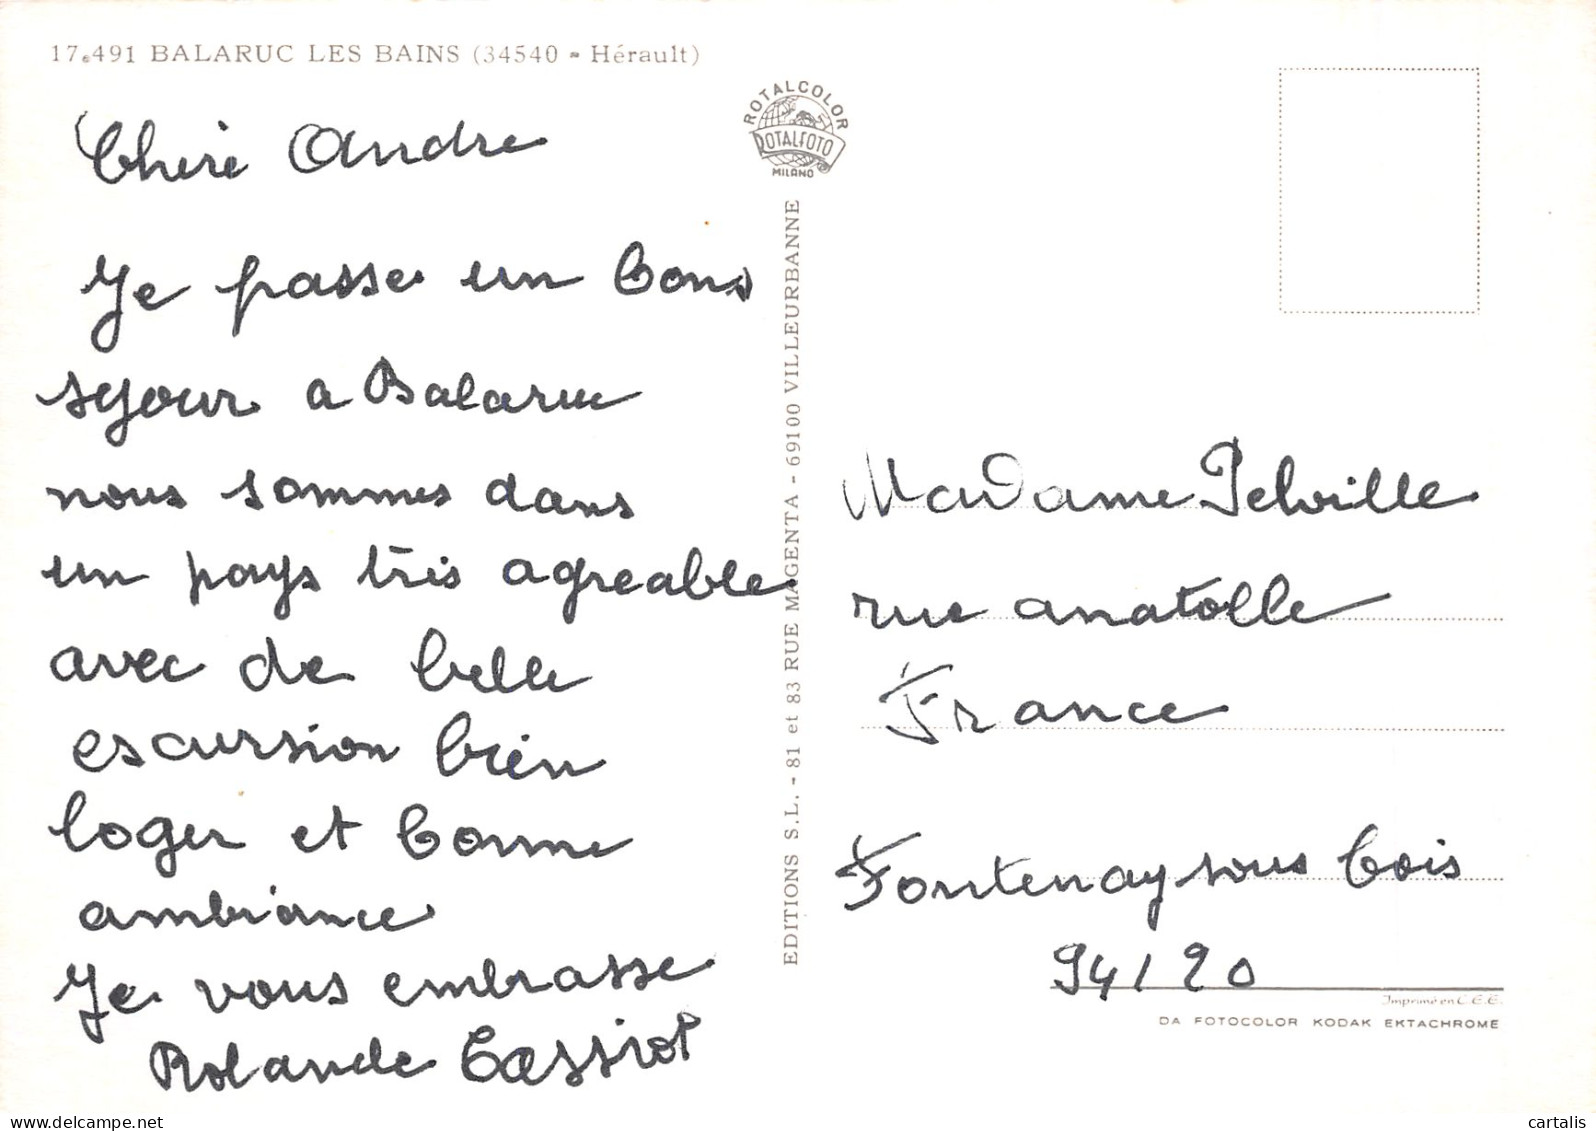 17.491 BALARUC LES BAINS (34540 - Hérault)
Cheri Andre
Je passe un bons
sejour a Balaruc
nous sommes dans
un pays tris agreable
avec de belle
escursion bien
loger et bonne
ambiance
Je vous embrasse
Rolande Cassiot
ROTALCOLOR
ROTALFOTO
MILANO
EDITIONS S.L. - 81 et 83 RUE MAGENTA - 69100 VILLEURBANNE
Madame Pelville
rue anatolle
France
Fontenay sous bois
94120
Imprimé en C.E.E.
DA FOTOCOLOR KODAK EKTACHROME
www.delcampe.net
cartalis